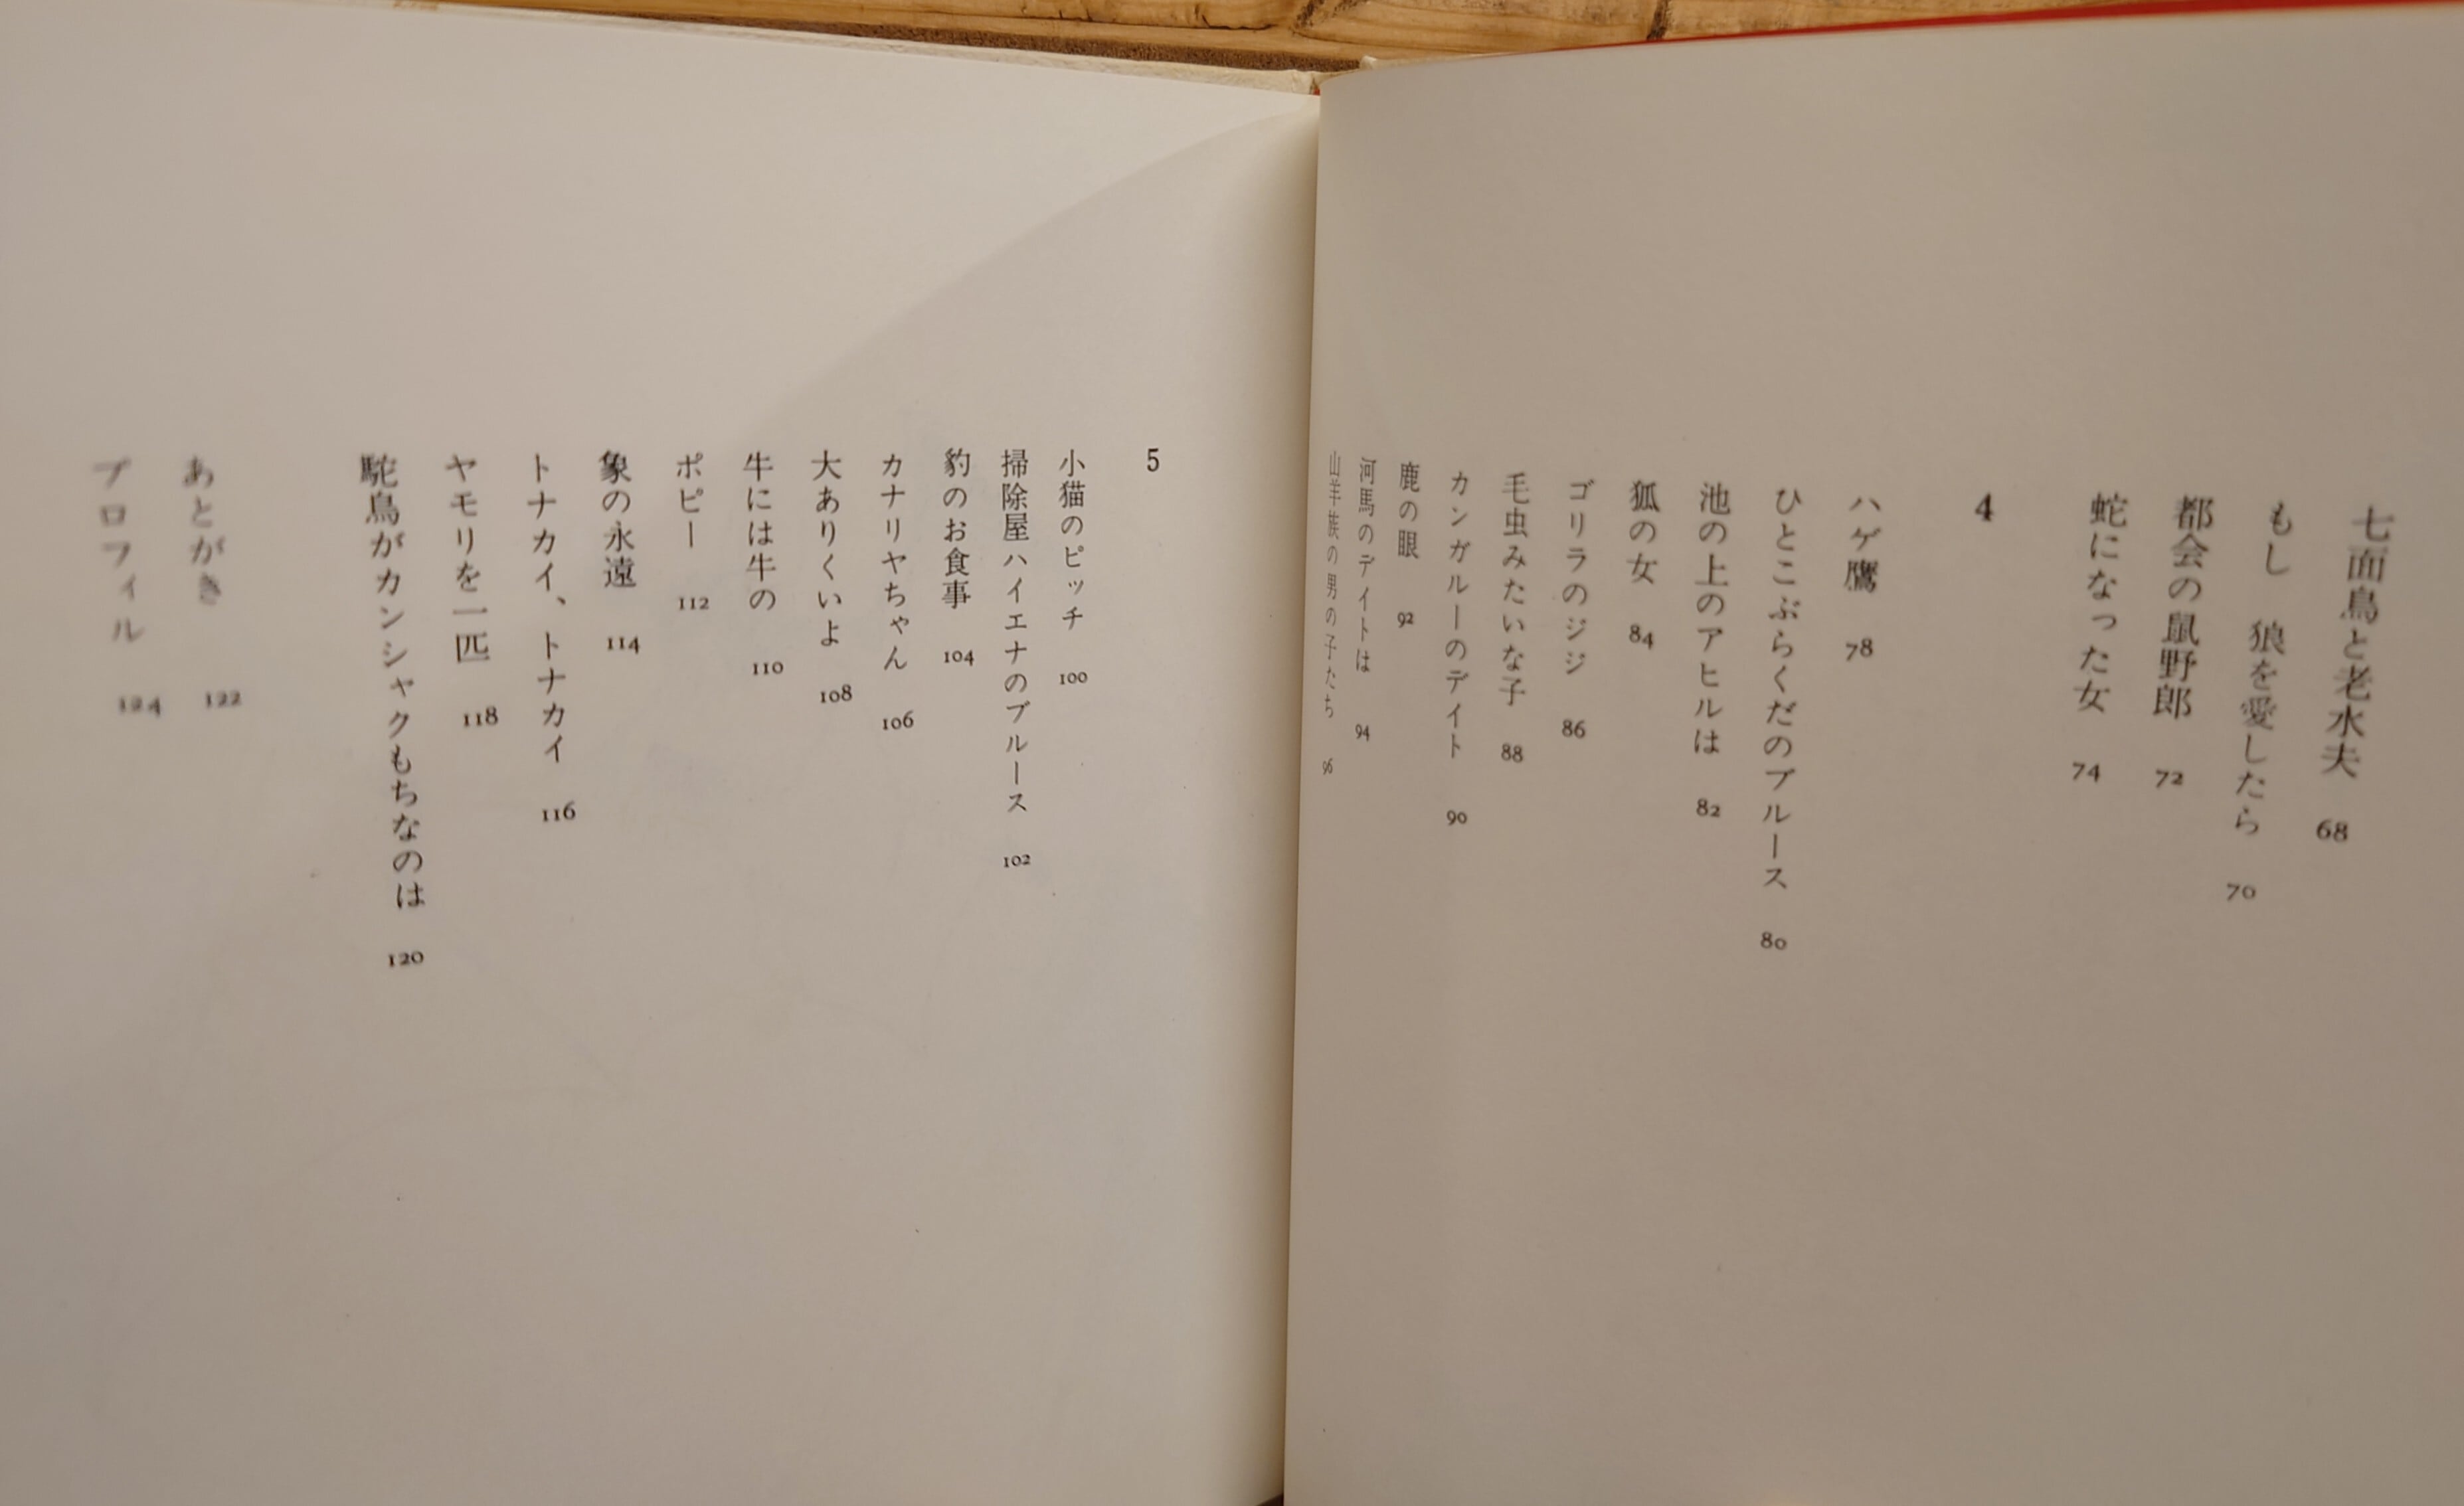 七面鳥と老水夫 68
もし 狼を愛したら 70
都会の鼠野郎 72
蛇になった女 74
4
ハゲ鷹 78
ひとこぶらくだのブルース 80
池の上のアヒルは 82
狐の女 84
ゴリラのジジ 86
毛虫みたいな子 88
カンガルーのデイト 90
鹿の眼 92
河馬のデイトは 94
山羊族の男の子たち 96
5
小猫のピッチ 100
掃除屋ハイエナのブルース 102
豹のお食事 104
カナリヤちゃん 106
大ありくいよ 108
牛には牛の 110
ポピー 112
象の永遠 114
トナカイ、トナカイ 116
ヤモリを一匹 118
駝鳥がカンシャクもちなのは 120
あとがき 122
プロフィル 124